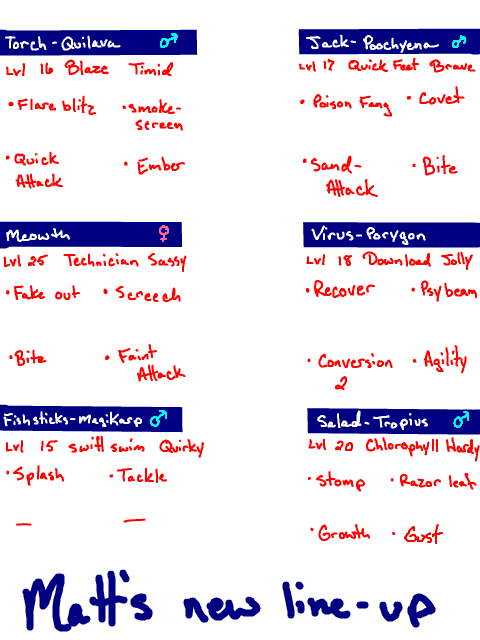 Torch - Quilava ♂
Lvl 16 Blaze Timid
• Flare blitz • smoke-
screen
• Quick
Attack • Ember
Jack - Poochyena ♂
Lvl 17 Quick Feet Brave
• Poison Fang • Covet
• Sand-
Attack • Bite
Meowth ♀
Lvl 25 Technician Sassy
• Fake out • Screech
• Bite • Faint
Attack
Virus - Porygon
Lvl 18 Download Jolly
• Recover • Psybeam
• Conversion
2 • Agility
Fishsticks - Magikarp ♂
Lvl 15 swift swim Quirky
• Splash • Tackle
— —
Salad - Tropius ♂
Lvl 20 Chlorophyll Hardy
• Stomp • Razor leaf
• Growth • Gust
Matt's new line-up